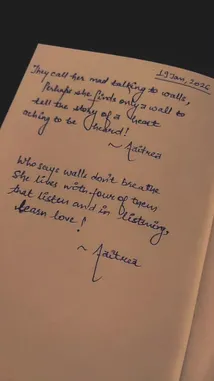 19 Jan, 2026
"They call her mad talking to walls,
Perhaps she finds only a wall to
tell the story of a heart
aching to be heard!
~
Who says walls don't breathe
She lives with four of them
that listen and in listening,
learn love!
~